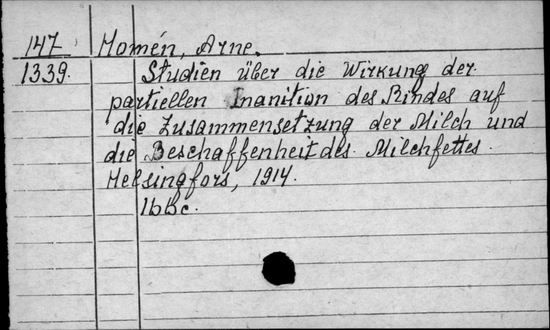 147 Homén, Arne.
1339. Studien über die Wirkung der
partiellen Inanition des Rindes auf
die Zusammensetzung der Milch und
die Beschaffenheit des Milchfettes.
Helsingfors, 1914.
166c.